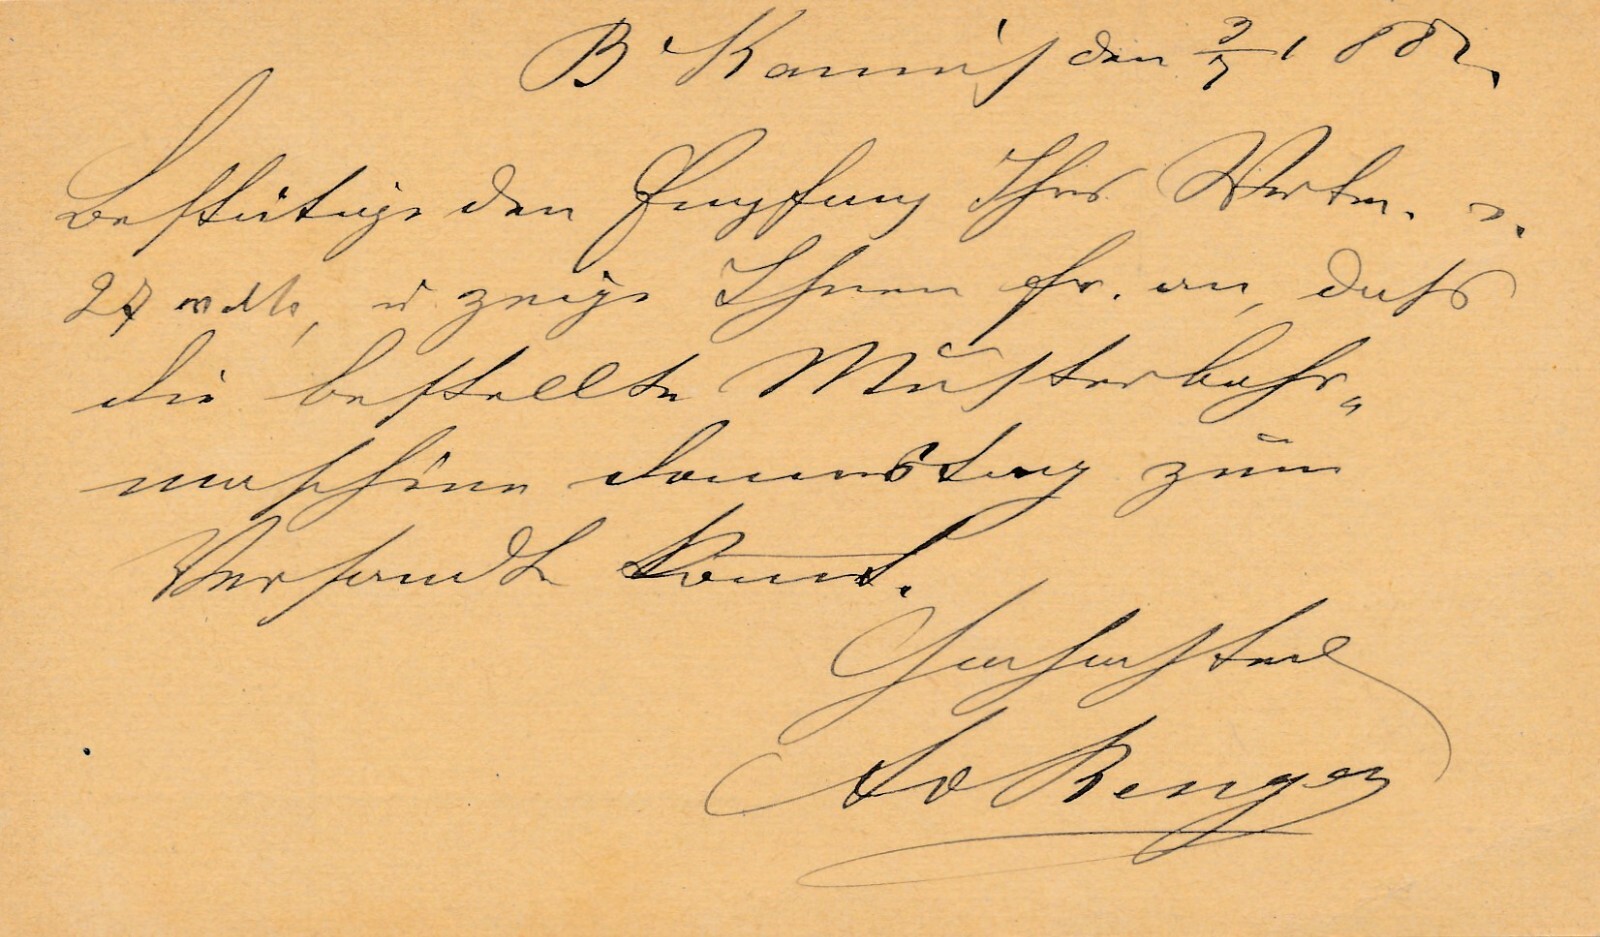 B. Kamnitz den 3/7 1882.
Bestätige den Empfang Ihres Werten. v.
27 v. Mts, u. zeige Ihnen fr. an, daß
die bestellte Musterbohr„
maschine donnerstag zum
Versandt kommt.
Hochachtend
Renger